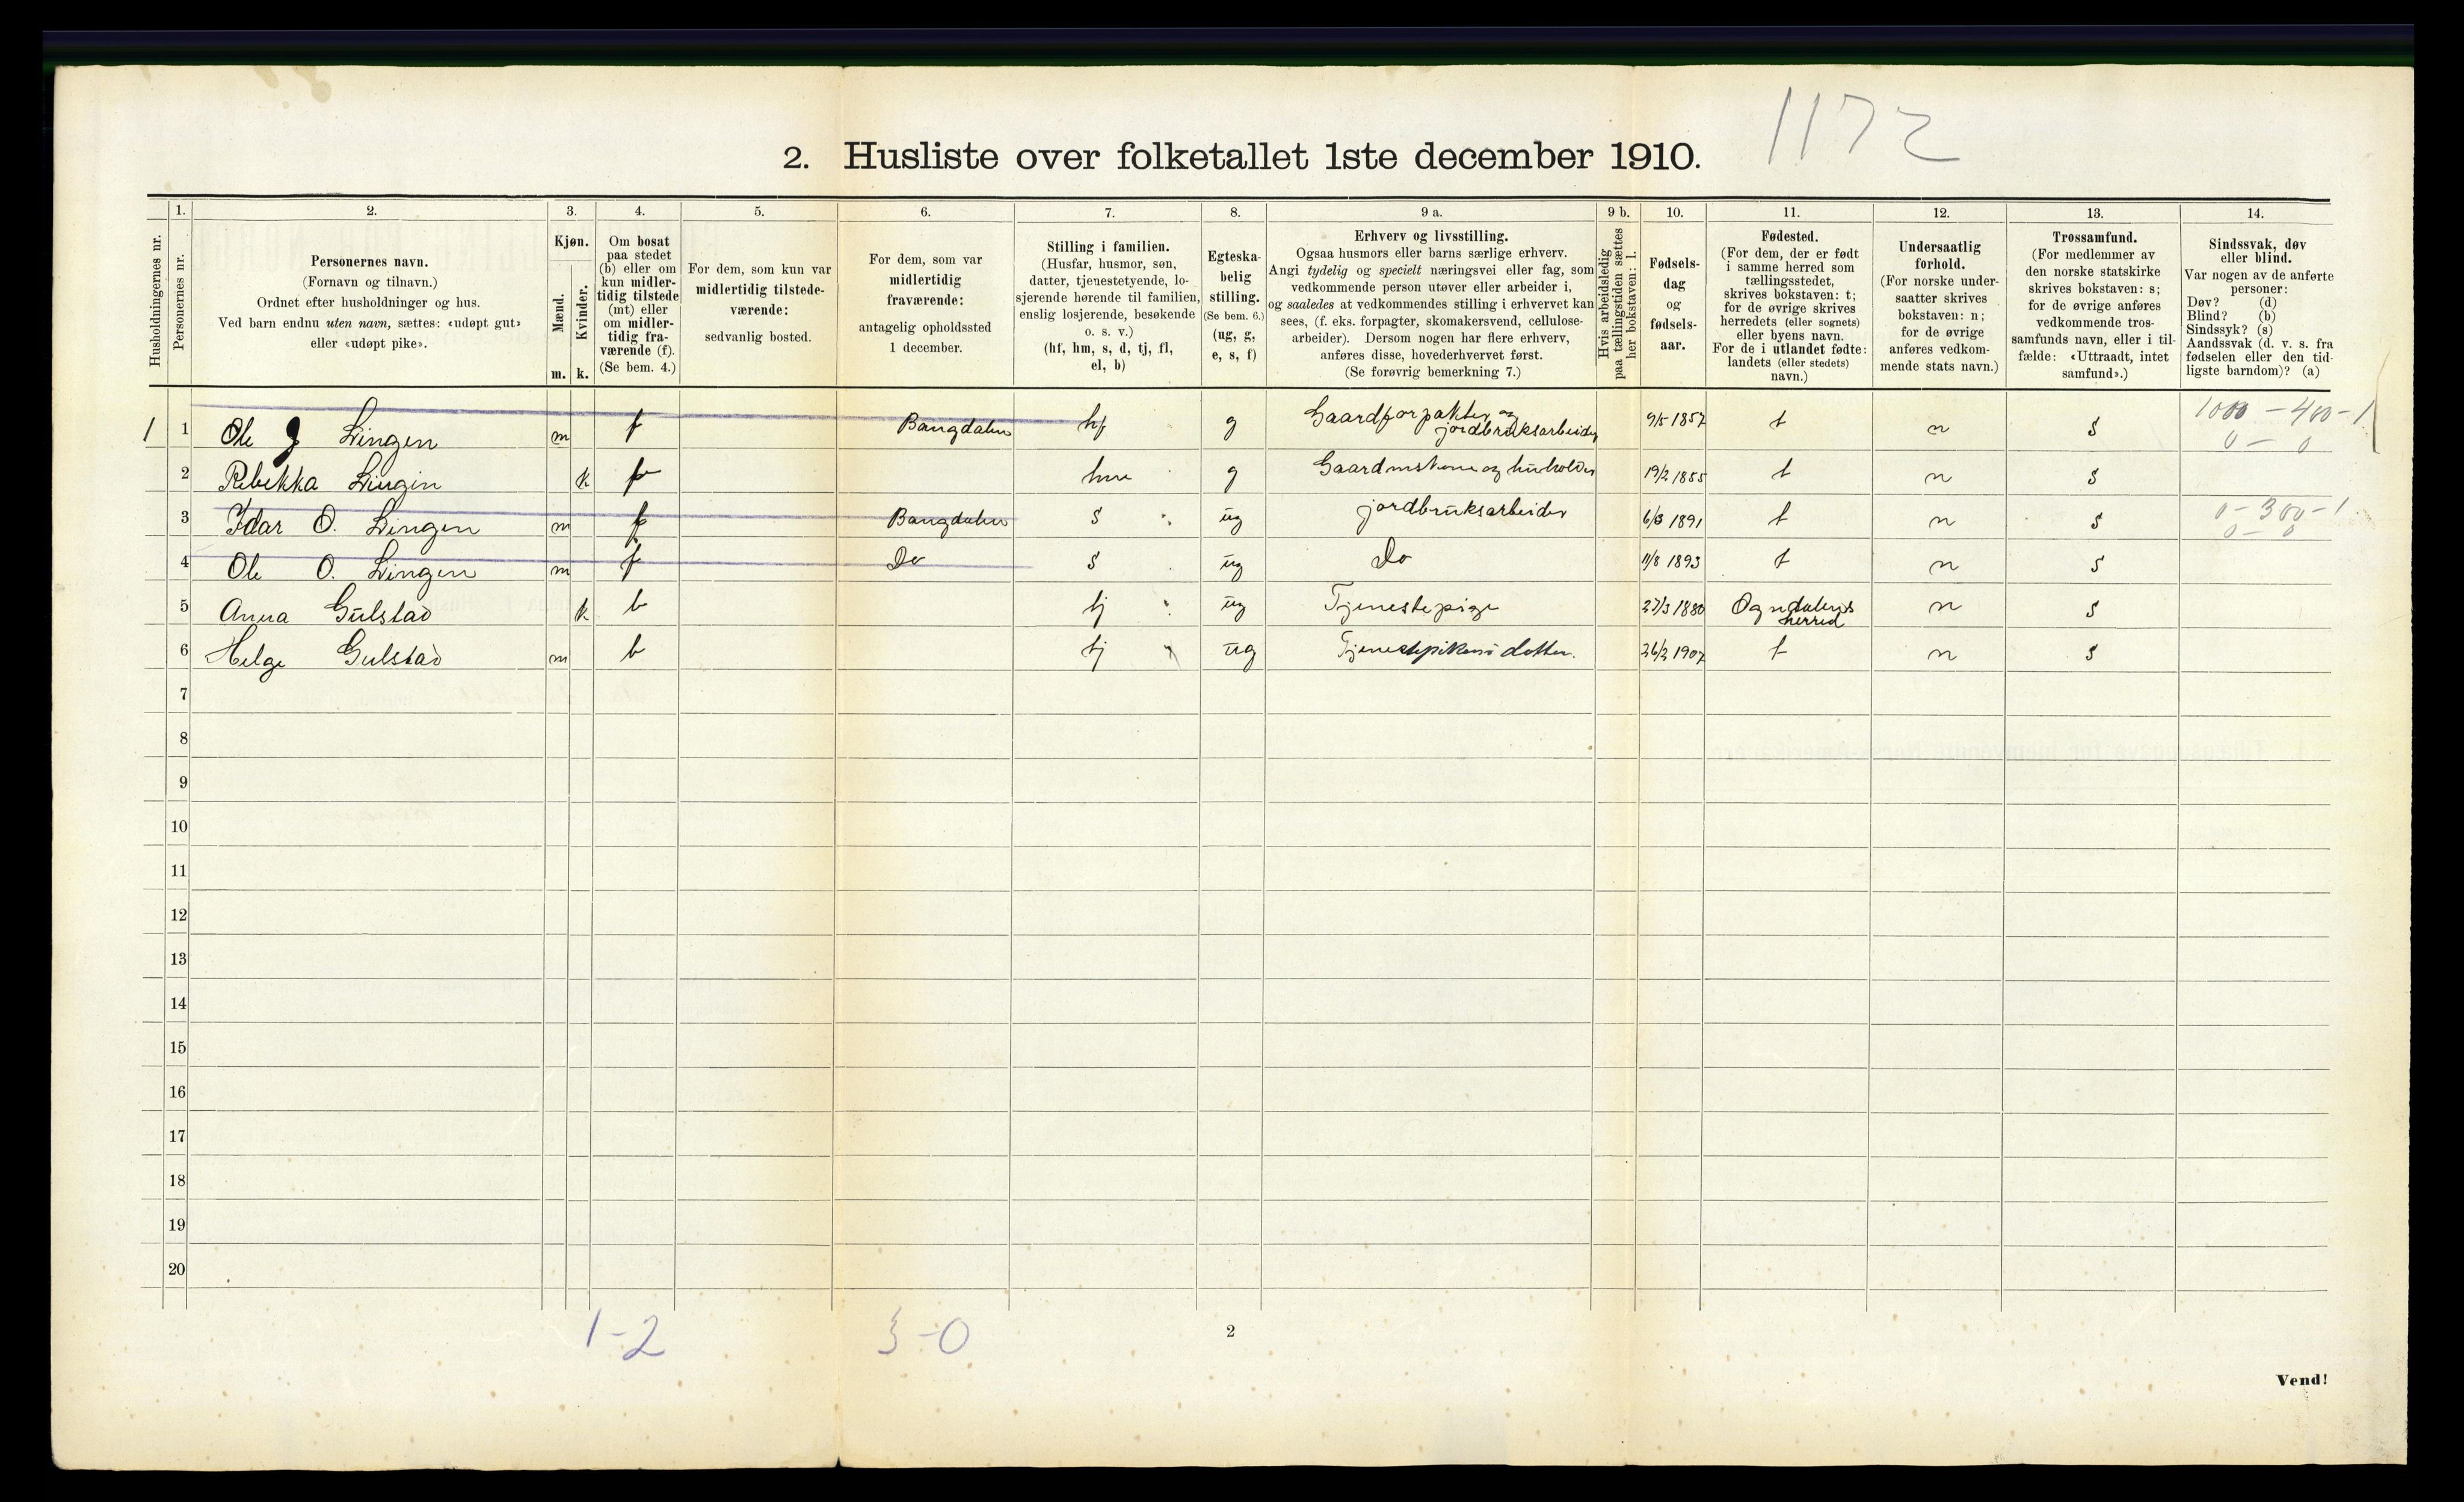 1172
2. Husliste over folketallet 1ste december 1910.
Husholdningernes nr.
1.
Personernes nr.
2.
Personernes navn.
(Fornavn og tilnavn.)
Ordnet efter husholdninger og hus.
Ved barn endnu uten navn, sættes: «udøpt gut»
eller «udøpt pike».
3.
Kjøn.
Mænd.
Kvinder.
m. k.
4.
Om bosat
paa stedet
(b) eller om
kun midler-
tidig tilstede
(mt) eller
om midler-
tidig fra-
værende (f).
(Se bem. 4.)
5.
For dem, som kun var
midlertidig tilstede-
værende:
sedvanlig bosted.
6.
For dem, som var
midlertidig
fraværende:
antagelig opholdssted
1 december.
7.
Stilling i familien.
(Husfar, husmor, søn,
datter, tjenestetyende, lo-
sjerende hørende til familien,
enslig losjerende, besøkende
o. s. v.)
(hf, hm, s, d, tj, fl,
el, b)
8.
Egteska-
belig
stilling.
(Se bem. 6.)
(ug, g,
e, s, f)
9 a.
Erhverv og livsstilling.
Ogsaa husmors eller barns særlige erhverv.
Angi tydelig og specielt næringsvei eller fag, som
vedkommende person utøver eller arbeider i,
og saaledes at vedkommendes stilling i erhvervet kan
sees, (f. eks. forpagter, skomakersvend, cellulose-
arbeider). Dersom nogen har flere erhverv,
anføres disse, hovederhvervet først.
(Se forøvrig bemerkning 7.)
9 b.
Hvis arbeidsledig
paa tællingstiden sættes
her bokstaven: l.
10.
Fødsels-
dag
og
fødsels-
aar.
11.
Fødested.
(For dem, der er født
i samme herred som
tællingsstedet,
skrives bokstaven: t;
for de øvrige skrives
herredets (eller sognets)
eller byens navn.
For de i utlandet fødte:
landets (eller stedets)
navn.)
12.
Undersaatlig
forhold.
(For norske under-
saatter skrives
bokstaven: n;
for de øvrige
anføres vedkom-
mende stats navn.)
13.
Trossamfund.
(For medlemmer av
den norske statskirke
skrives bokstaven: s;
for de øvrige anføres
vedkommende tros-
samfunds navn, eller i til-
fælde: «Uttraadt, intet
samfund».)
14.
Sindssvak, døv
eller blind.
Var nogen av de anførte
personer:
Døv? (d)
Blind? (b)
Sindssyk? (s)
Aandssvak (d. v. s. fra
fødselen eller den tid-
ligste barndom)? (a)
1 1 Ole J Lingen m f Bangdalen hf g Gaardforpakter og jordbruksarbeider 9/5 1857 t n s 1000 - 400 - 1
0 - 0
2 Rebekka Lingen k f hm g 19/2 1855 t n s
3 Idar O. Lingen m f Bangdalen s ug jordbruksarbeider 1891 t n s 0 - 300 - 1
0 - 0
4 Ole O. Lingen m f Do s ug Do 11/8 1893 t n s
5 Anna Gulstad k b tj ug Tjenestepige 27/3 1880 Ogndalens herred n s
6 Helge Gulstad m b tj ug Tjenestepikens datter. 26/2 1907 t n s
7
8
9
10
11
12
13
14
15
16
17
18
19
20
1-2 3-0
2
Vend!